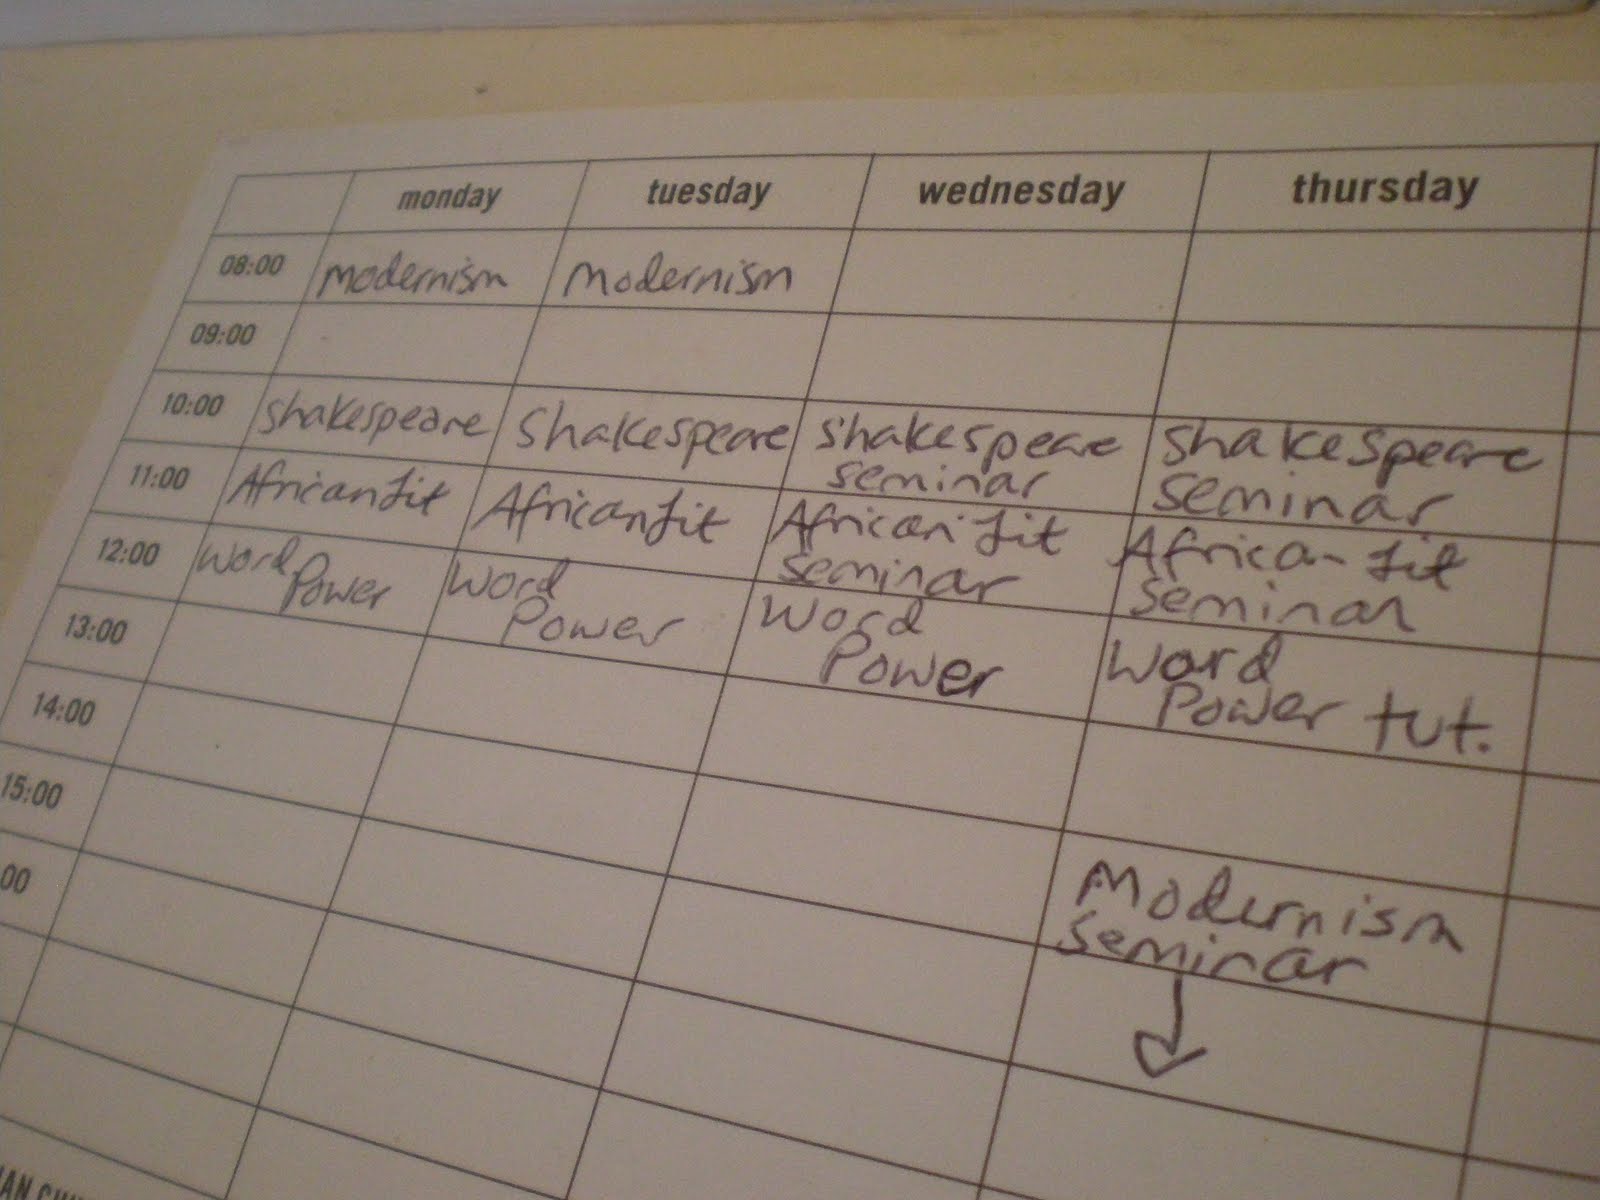 monday tuesday wednesday thursday
08:00 Modernism Modernism
09:00
10:00 Shakespeare Shakespeare Shakespeare seminar Shakespeare seminar
11:00 African Lit African Lit African Lit seminar African Lit seminar
12:00 Word Power Word Power Word Power Word Power tut.
13:00
14:00
15:00 Modernism seminar
00